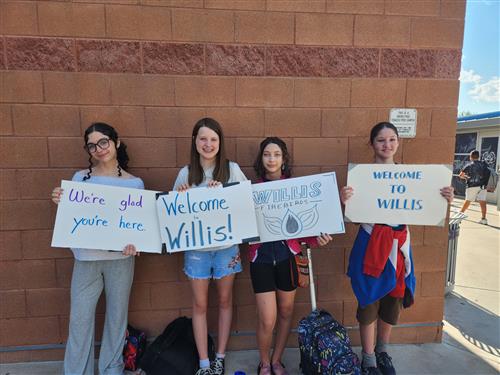 We're glad
you're here.
Welcome
to
Willis!
WILLIS
FIREBIRDS
WELCOME
TO
WILLIS